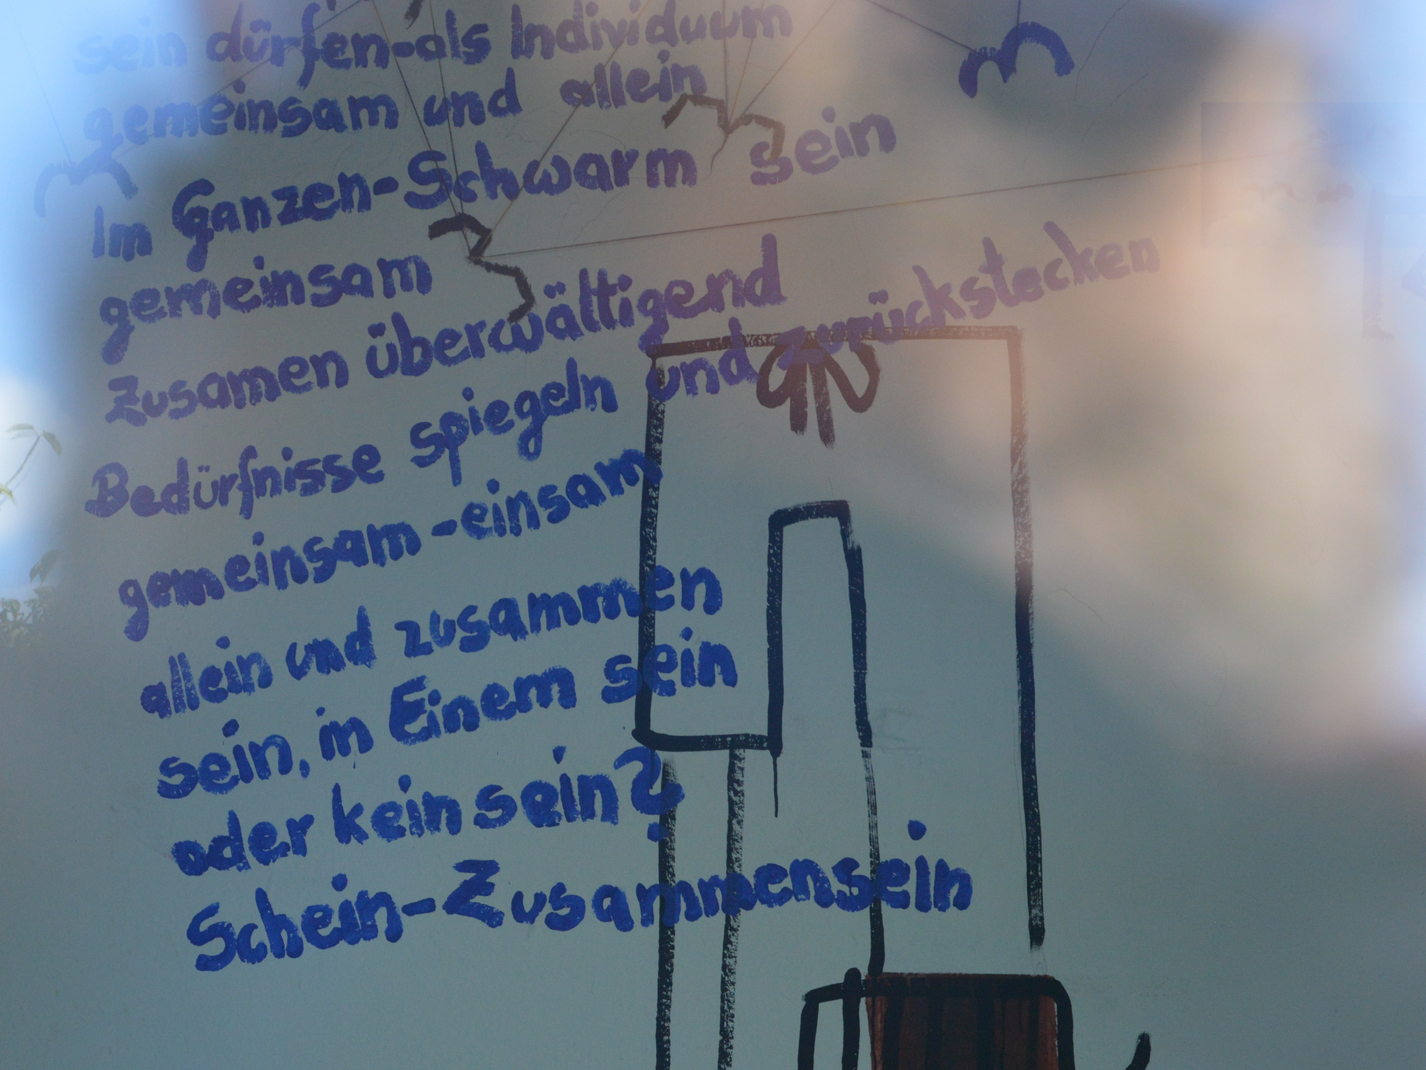 sein dürfen-als Individuum
gemeinsam und allein
Im Ganzen-Schwarm sein
gemeinsam
Zusamen überwältigend
Bedürfnisse spiegeln und zurückstecken
gemeinsam-einsam
allein und zusammen
sein, in Einem sein
oder kein sein?
Schein-Zusammensein